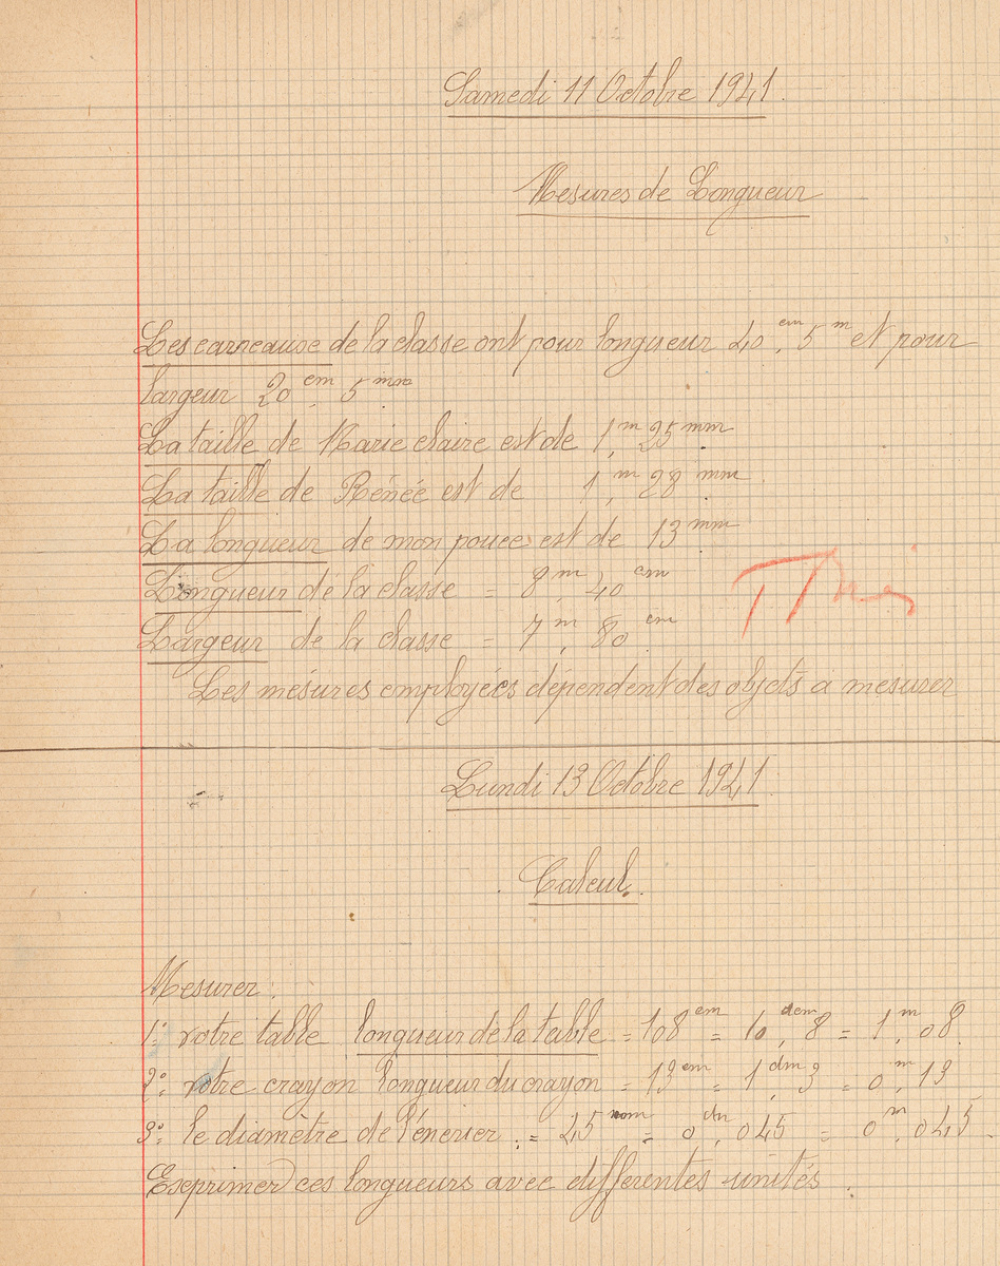 Samedi 11 Octobre 1941.
Mesures de Longueur
Les carreause de la classe ont pour longueur 40 cm, 5 m et pour
largeur 20 cm, 5 mm
La taille de Marie claire est de 1 m, 25 mm.
La taille de Renée est de 1 m, 28 mm.
La longueur de mon pouce est de 13 mm
Longueur de la classe = 8 m, 40 cm
Largeur de la classe = 7 m, 80 cm
Les mésures employées dépendent des objets a mesurer
Lundi 13 Octobre 1941.
Calcul.
Mesurer :
1°: votre table longueur de la table = 108 cm = 10, dcm 8 = 1, m 08.
2°: votre crayon longueur du crayon = 13 cm = 1, dm 3 = 0, m 13
3°: le diamètre de l'encrier. = 45 mm = 0, dm 045 = 0, m 045.
Exeprimer ces longueurs avec differentes unités.